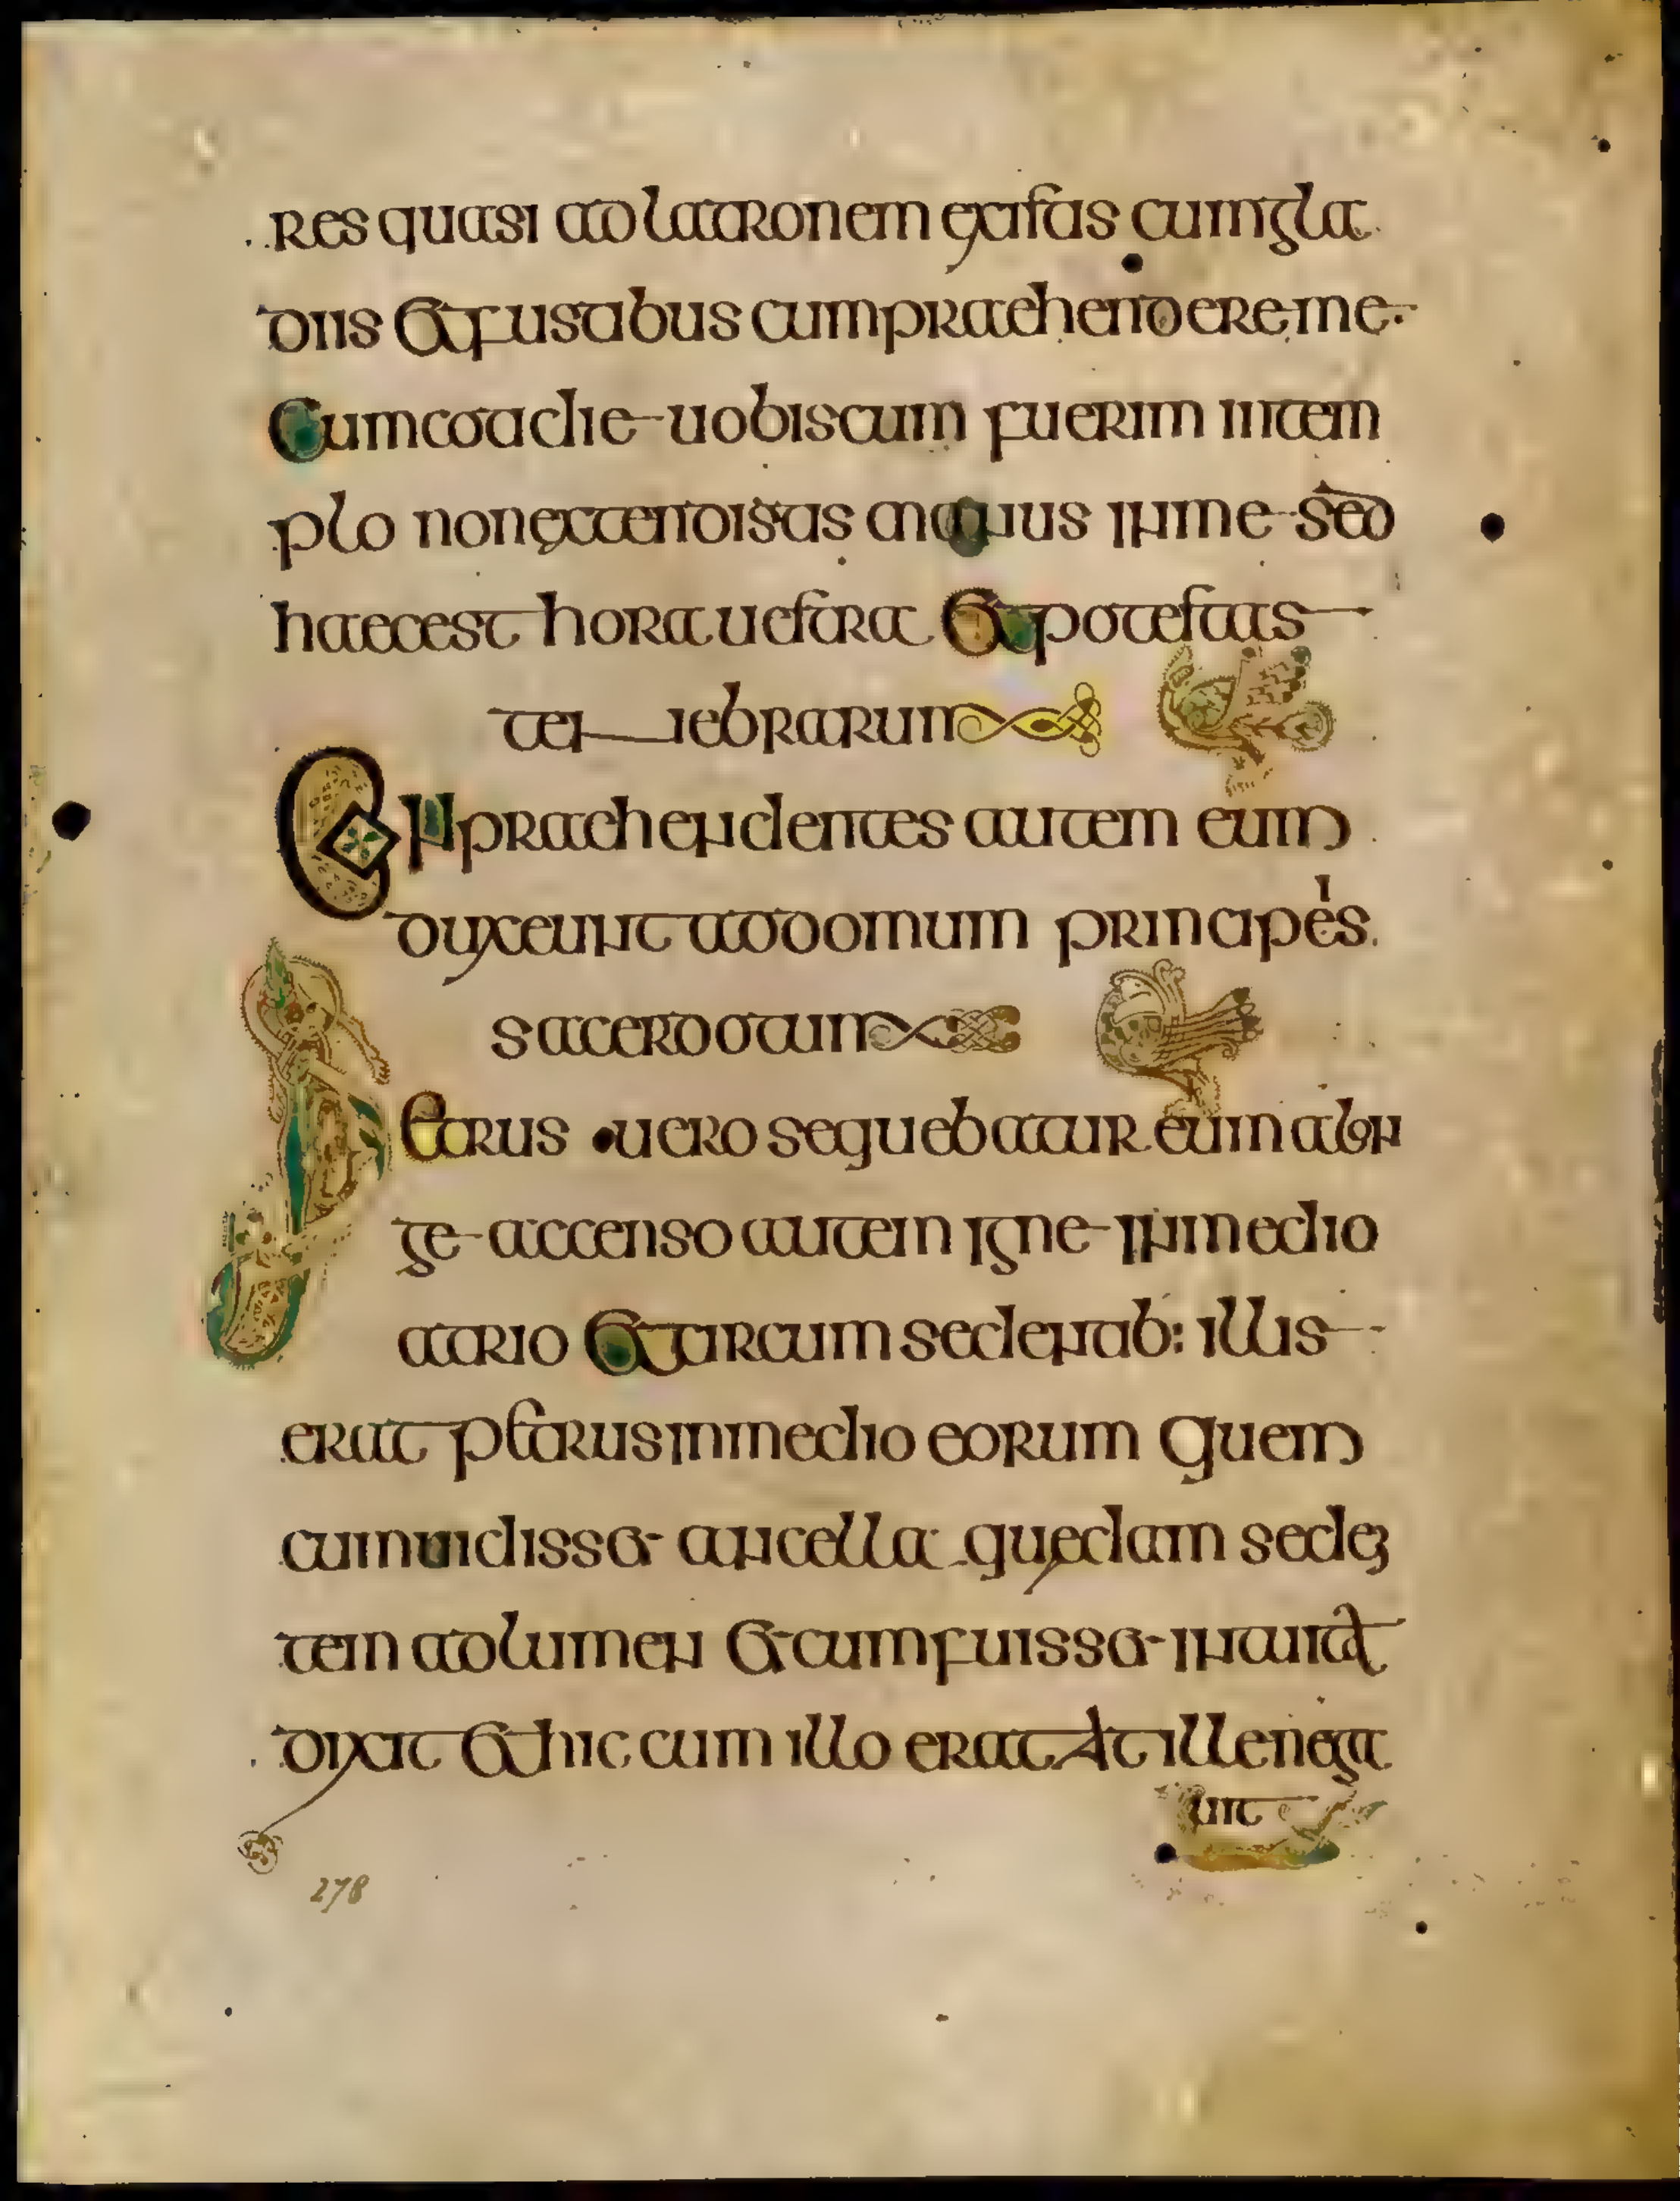 res quasi ad latronem existis cum gla
diis et fustibus cum praehendere me
Cum cotidie uobiscum fuerim in tem
plo non extendistis manus in me sed
haec est hora uestra et potestas
tenebrarum
Conpraehendentes autem eum
duxerunt ad domum principes
sacerdotum
Petrus uero sequebatur eum a lon
ge accenso autem igne in medio
atrio et circum sedentib: illis
erat petrus in medio eorum quem
cum uidisset ancella quedam seden
tem ad lumen et cum fuisset intuita
dixit et hic cum illo erat At ille nega
uit
278